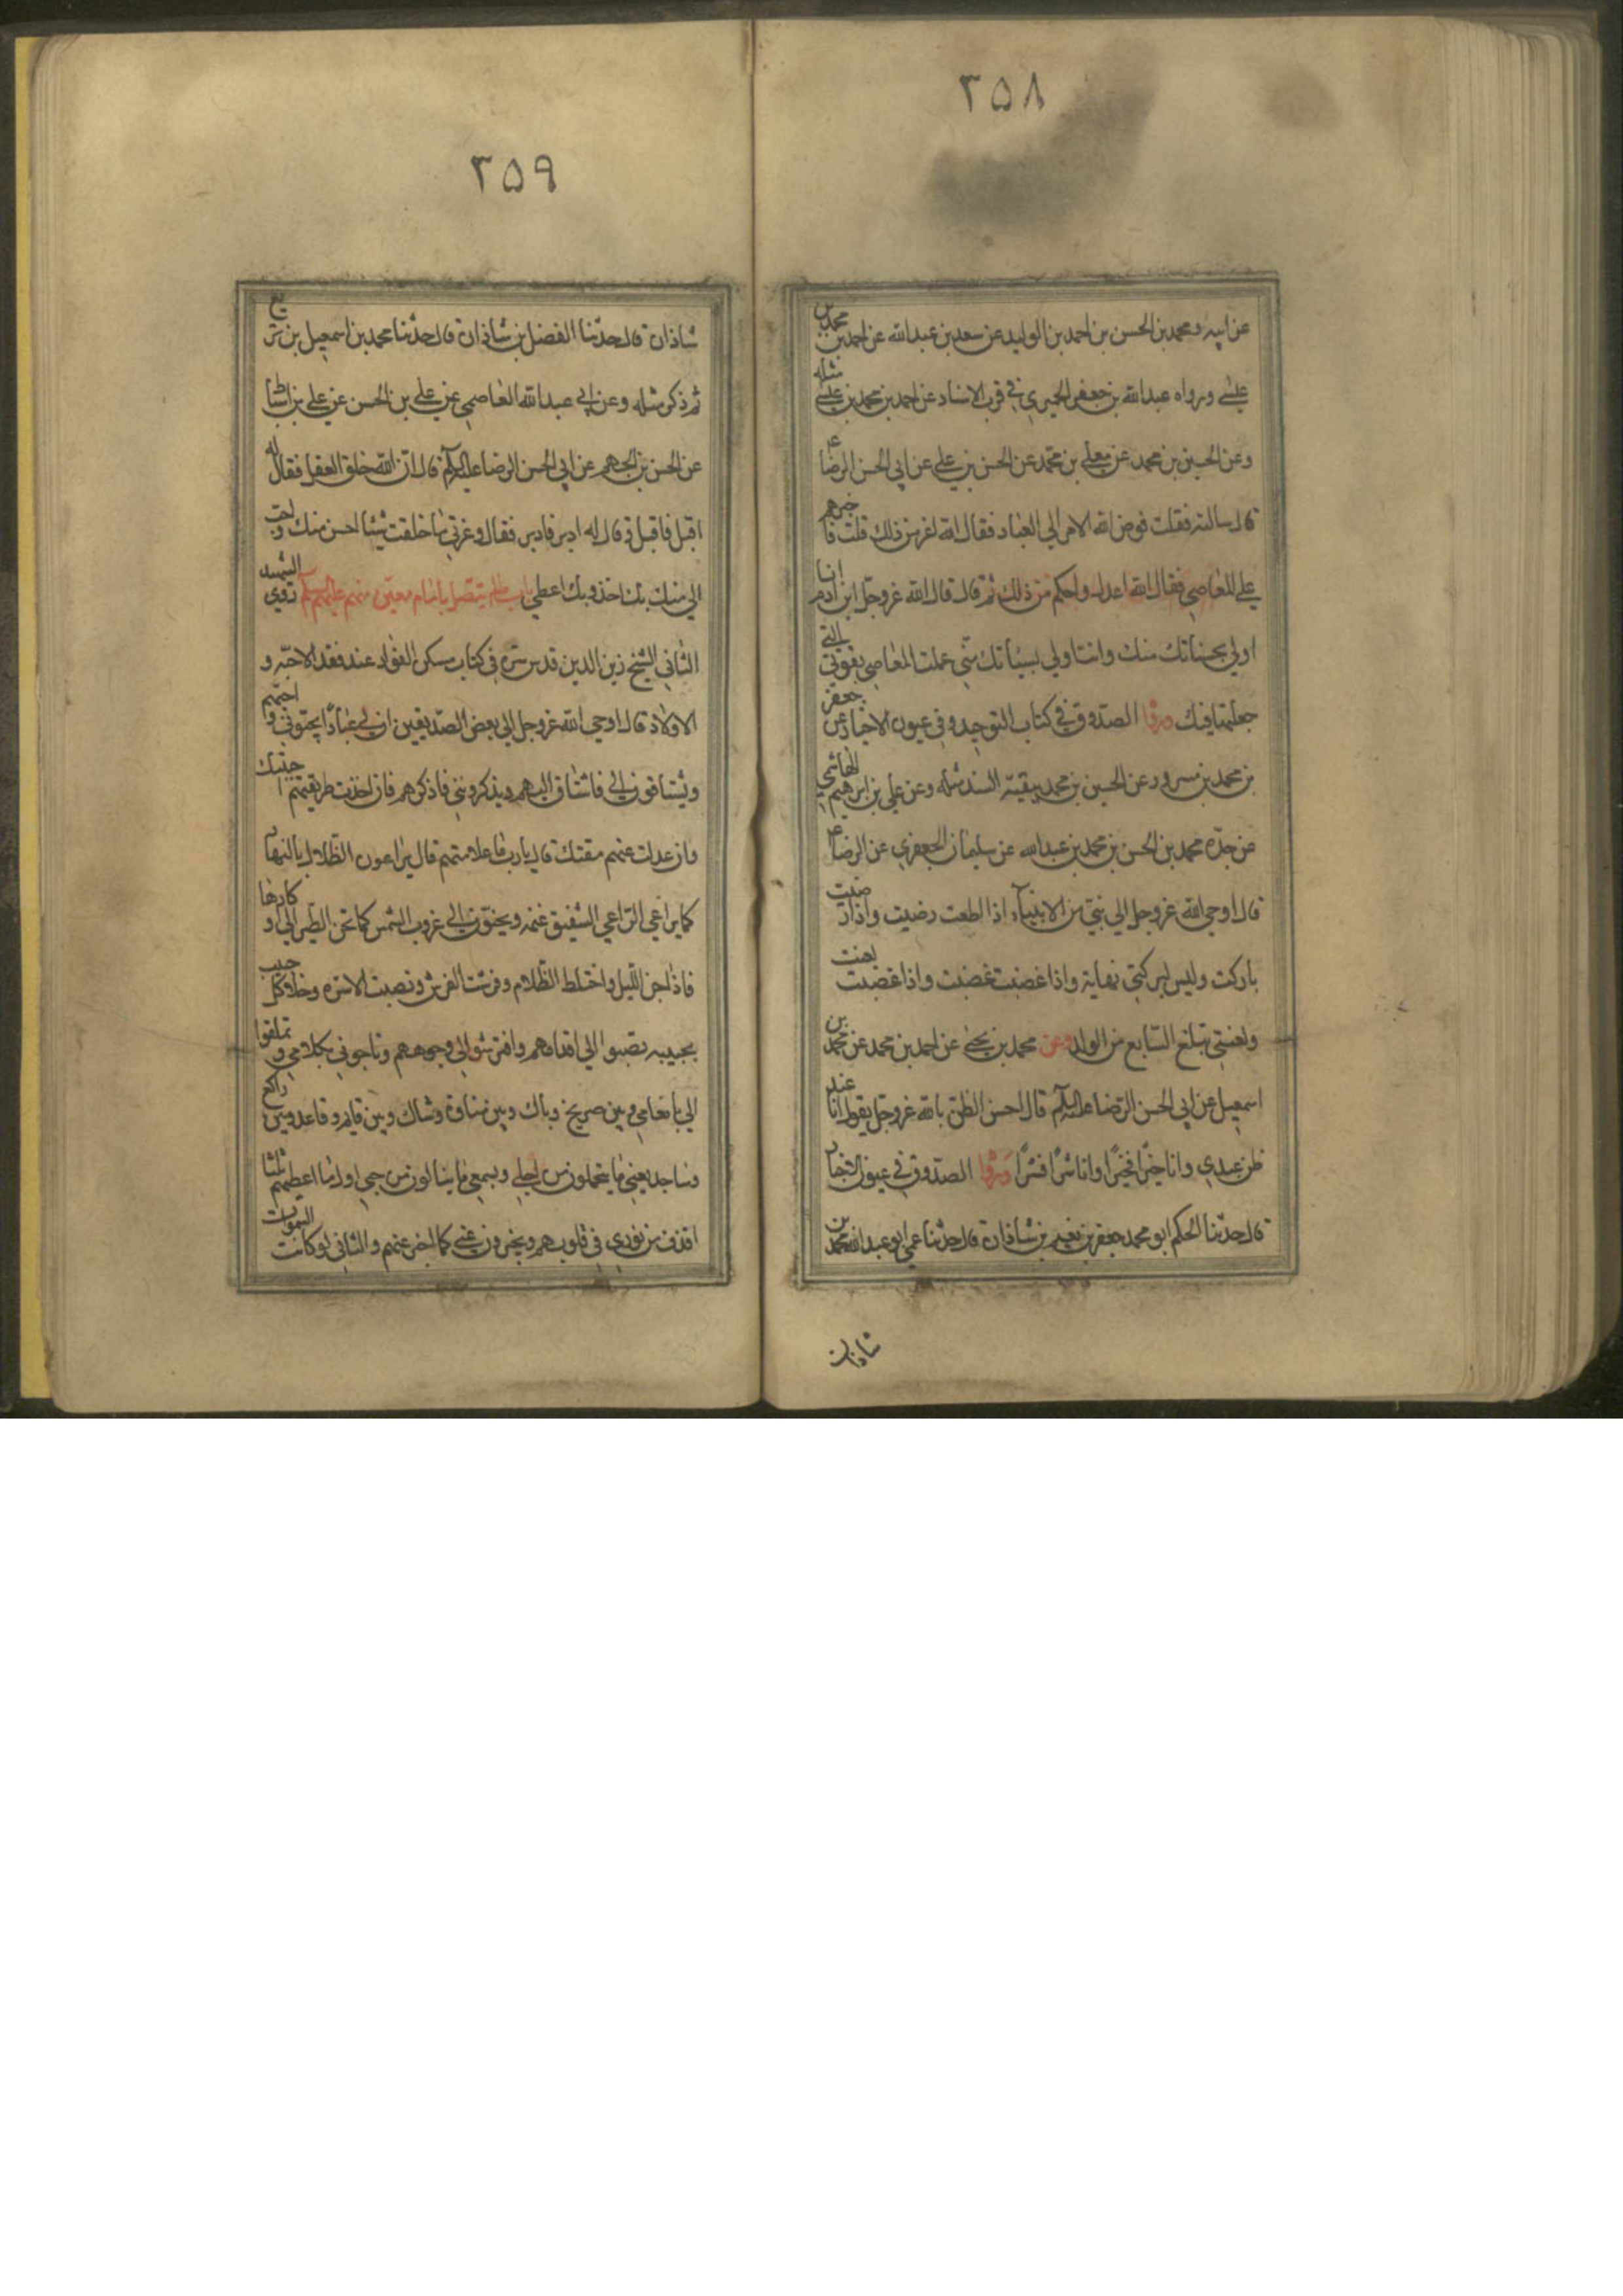 ٣٥٨
عن ابيه ومحمد بن الحسن بن احمد بن الوليد عن سعد بن عبدالله عن احمد بن محمد بن
عيسى ورواه عبدالله بن جعفر الحميري في قرب الاسناد عن احمد بن محمد بن عيسى مثله
وعن الحسين بن محمد عن معلى بن محمد عن الحسن بن علي عن ابي الحسن الرضا ع
قال سالته فقلت فوض الله الامر الى العباد فقال الله اعز من ذلك قلت فاجبرهم
على المعاصي فقال الله اعدل واحكم من ذلك ثم قال قال الله عز وجل ابن ادم انا
اولى بحسناتك منك وانت اولى بسيئاتك مني عملت المعاصي بقوتي التي
جعلتها فيك وروا الصدوق في كتاب التوحيد وفي عيون الاخبار عن جعفر
بن محمد بن مسرور عن الحسين بن محمد ببقية السند مثله وعن علي بن ابرهيم الهاشمي
عن جده محمد بن الحسن بن محمد بن عبدالله عن سليمان الجعفري عن الرضا ع
قال اوحى الله عز وجل الى نبي من الانبياء اذا اطعت رضيت واذا رضيت
باركت وليس لبركتي نهاية واذا عصيت غضبت واذا غضبت لعنت
ولعنتي تبلغ السابع من الولد وعن محمد بن يحيى عن احمد بن محمد عن محمد بن
اسمعيل عن ابي الحسن الرضا عليه السلام قال احسن الظن بالله عز وجل يقول انا عند
ظن عبدي وانا خيرا فخيرا وانا شرا فشرا وروا الصدوق في عيون الاخبار
قال حدثنا الحكم ابو محمد جعفر بن نعيم بن شاذان قال حدثنا عمي ابو عبدالله محمد بن
شاذان
٣٥٩
شاذان قال حدثنا الفضل بن شاذان قال حدثنا محمد بن اسمعيل بن بزيع
ثم ذكر مثله وعن ابي عبدالله العاصمي عن علي بن الحسن عن علي بن اسباط
عن الحسن بن الجهم عن ابي الحسن الرضا عليه السلام قال ان الله خلق العقل فقال له
اقبل فاقبل وقال له ادبر فادبر فقال وعزتي ما خلقت شيئا احسن منك واحب
الي منك بك اخذ وبك اعطي باب ما لم يتصل بامام معين منهم عليهم السلم روى الشهيد
الثاني الشيخ زين الدين قدس سره في كتاب مسكن الفواد عند فقد الاحبة و
الاولاد قال اوحى الله عز وجل الى بعض الصديقين ان لي عبادا يحبوني واحبهم
ويشتاقون الي فاشتاق اليهم ويذكروني فاذكرهم فان اخذت طريقتهم احببتك
وان عدلت عنهم مقتك قال يا رب ما علامتهم قال يراعون الظلال بالنهار
كما يراعي الراعي الشفيق غنمه ويحنون الى غروب الشمس كما تحن الطير الى اوكارها
فاذا جن الليل واختلط الظلام وفرشت الفرش ونصبت الاسرة وخلا كل حبيب
بحبيبه نصبوا الي اقدامهم وافترشوا لي وجوههم وناجوني بكلامي وتملقوا
الي بانعامي وبين صريخ وباك وبين متاوه وشاك وبين قايم وقاعد وبين راكع
وساجد بعيني ما يتحملون من اجلي وبسمعي ما يسالون من حبي اول ما اعطيهم ثلثا
اقذف من نوري في قلوبهم ويخبرون عني كما اخبر عنهم والثاني لو كانت السموات